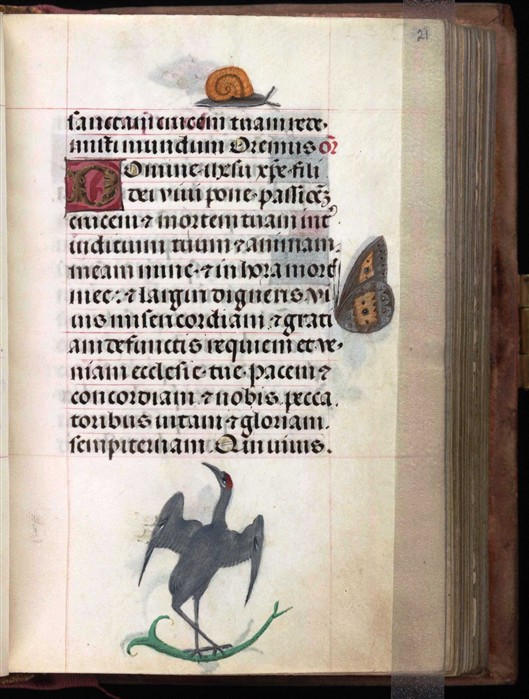 21
sanctam crucem tuam rede
misti mundum Oremus or
Domine ihesu xpe fili
dei vivi pone passioēȝ
crucem ⁊ mortem tuam int̄
iudicium tuum ⁊ animam
meam nunc ⁊ in hora mort
mee ⁊ largiri digneris vi
uis misericordiam ⁊ grati
am defunctis requiem et ve
niam ecclesie tue pacem ⁊
concordiam ⁊ nobis pecca
toribus uitam ⁊ gloriam
sempiternam Qui uiuis